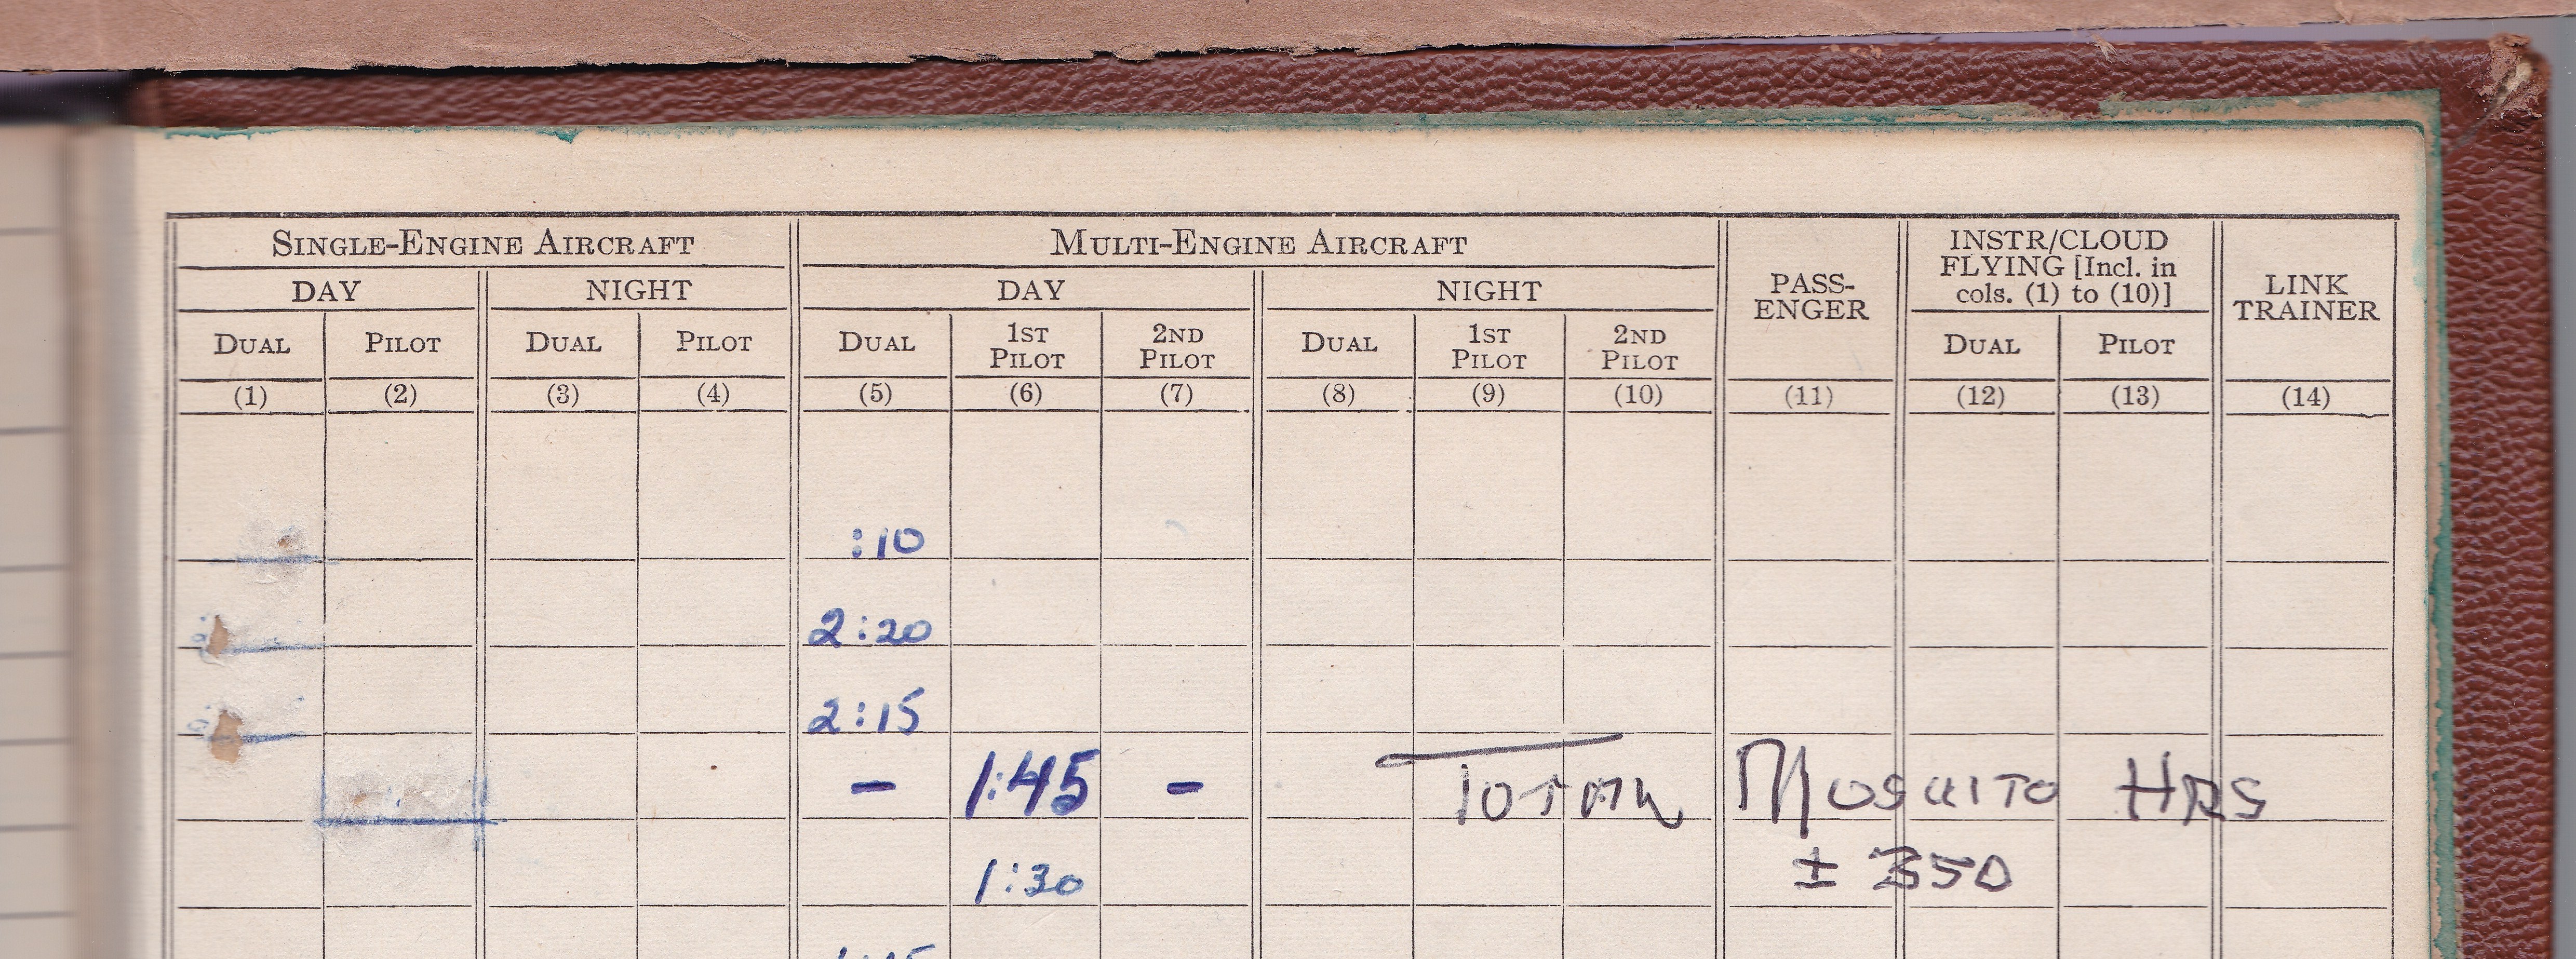 SINGLE-ENGINE AIRCRAFT MULTI-ENGINE AIRCRAFT PASS-ENGER INSTR/CLOUD FLYING [Incl. in cols. (1) to (10)] LINK TRAINER
DAY NIGHT DAY NIGHT
DUAL PILOT DUAL PILOT DUAL 1ST PILOT 2ND PILOT DUAL 1ST PILOT 2ND PILOT DUAL PILOT
(1) (2) (3) (4) (5) (6) (7) (8) (9) (10) (11) (12) (13) (14)
:10
2:20
2:15
- 1:45 - TOTAL MOSQUITO HRS
1:30 ± 350